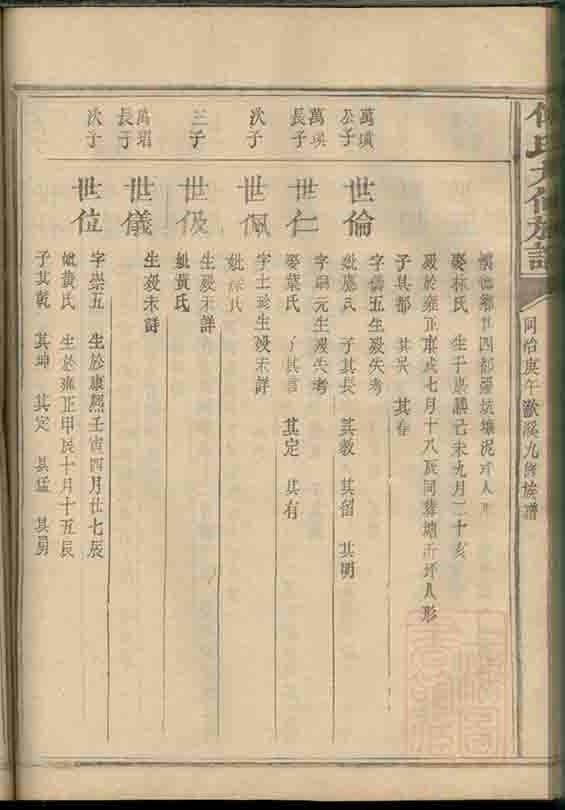 氏九修族譜
同治庚午
九修族譜
四都
人形
娶林氏 生于康熙己未九月二十亥
歿於雍正庚戌七月十八辰同葬塘
人形
子其都 其 其春
萬
公子
世倫
字 五生歿失考
妣 氏 子其長 其教 其留 其明
萬
長子
世仁
字 元生歿失考
娶葉氏 子其言 其定 其有
次子
世佩
字士珍生歿未詳
妣 氏
三子
世伋
生歿未詳
妣黃氏
萬
長子
世儀
生歿未詳
次子
世位
字崇五 生於康熙壬寅四月廿七辰
妣黃氏 生於雍正甲辰十月十五辰
子其乾 其坤 其定 其猛 其勇